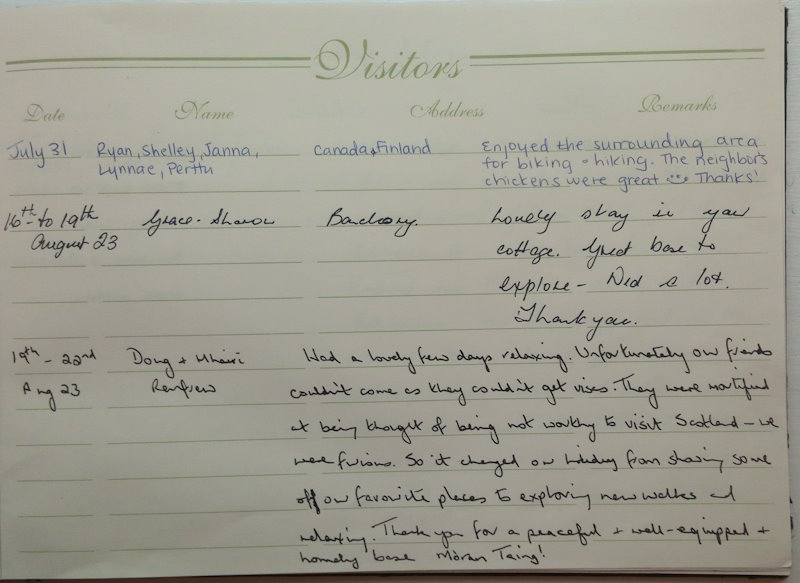 Visitors
Date Name Address Remarks
July 31 Ryan, Shelley, Janna, Canada & Finland Enjoyed the surrounding area
Lynnae, Perttu for biking + hiking. The neighbors
chickens were great Thanks!
16th - to 19th Grace - Sharon Banchory. Lovely stay in your
August 23 cottage. Great base to
explore - Did a lot.
Thank you.
19th - 22nd Doug + Mhairi Had a lovely few days relaxing. Unfortunately our friends
Aug 23 Renfrew couldn't come as they couldn't get visas. They were mortified
at being thought of being not worthy to visit Scotland - we
were furious. So it changed our holiday from sharing some
off our favourite places to exploring new walks and
relaxing. Thank you for a peaceful + well-equipped +
homely base Mòran Taing!